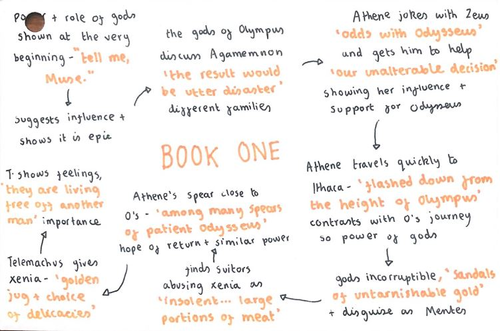 role of gods
shown at the very
beginning - "tell me,
Muse."
suggests influence +
shows it is epic
the gods of Olympus
discuss Agamemnon
'the result would
be utter disaster'
different families
Athene jokes with Zeus
'odds with Odysseus'
and gets him to help
'our unalterable decision'
showing her influence +
support for Odysseus
BOOK ONE
Athene travels quickly to
Ithaca - 'flashed down from
the height of Olympus'
contrasts with O's journey
so power of gods
gods incorruptible, 'sandals
of untarnishable gold'
+ disguise as Mentes
finds suitors
abusing xenia as
'insolent... large
portions of meat'
Athene's spear close to
O's - 'among many spears
of patient Odysseus'
hope of return + similar power
Telemachus gives
xenia - 'golden
jug + choice
of delicacies'
T. shows feelings,
'they are living
free off another
man' importance